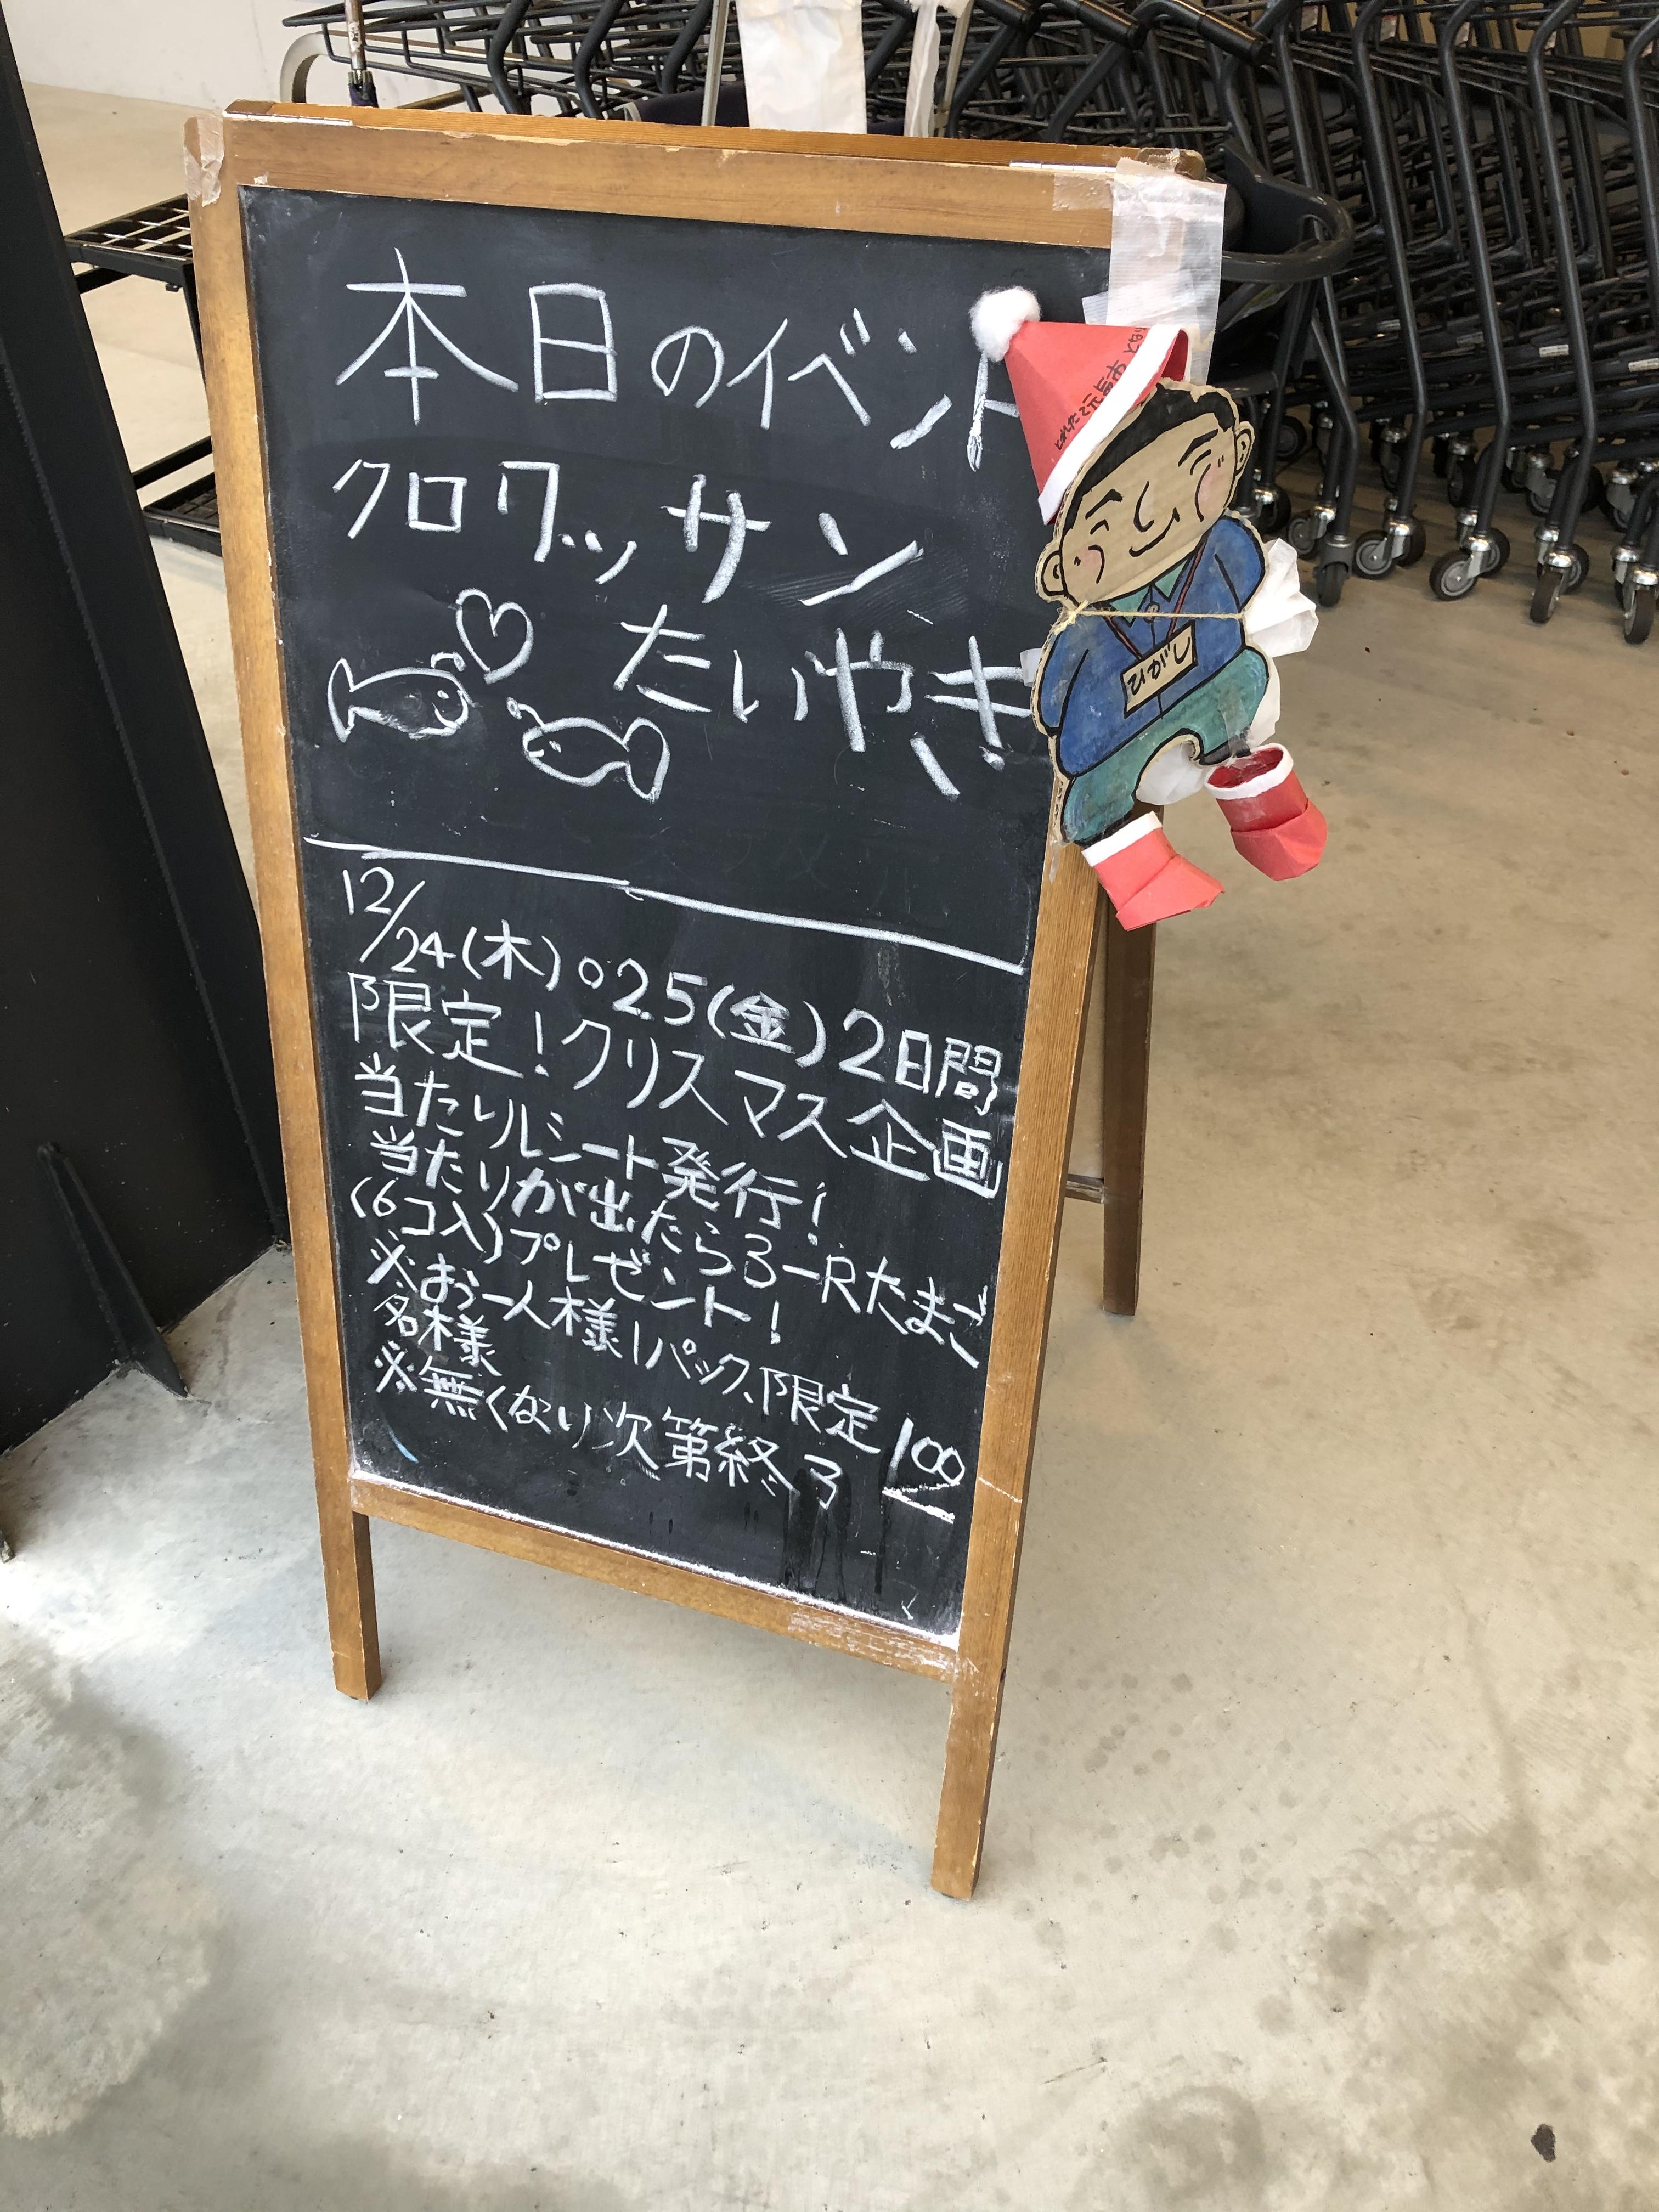 本日のイベント
クロワッサン
たいやき
12/24(木)。25(金)2日間
限定!クリスマス企画
当たりレシート発行!
当たりが出たら3-Rたまご
(6コ入)プレゼント!
※お一人様1パック、限定100
名様
※無くなり次第終了
ひがし